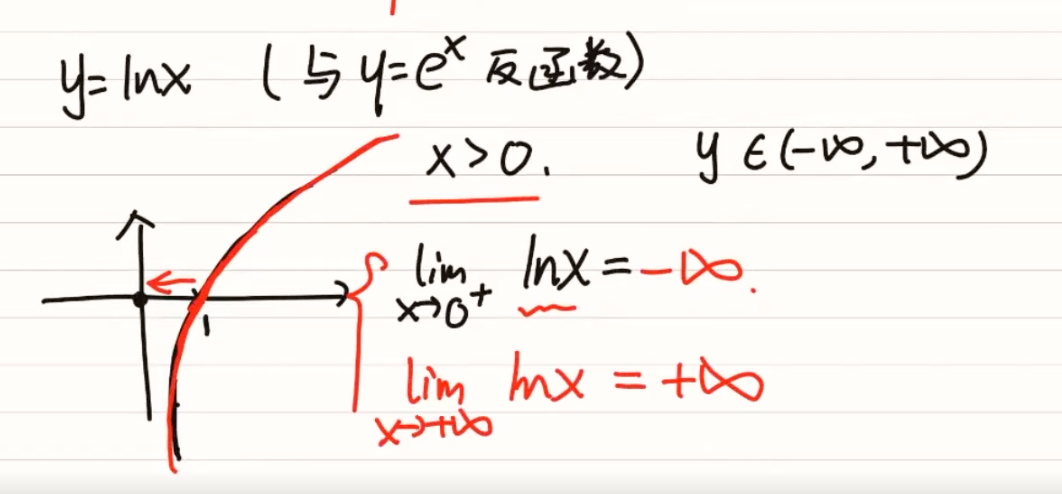 y=lnx (与y=e^x 反函数)
x>0. y∈(-∞,+∞)
lim x→0⁺ lnx=-∞.
1
lim x→+∞ lnx=+∞